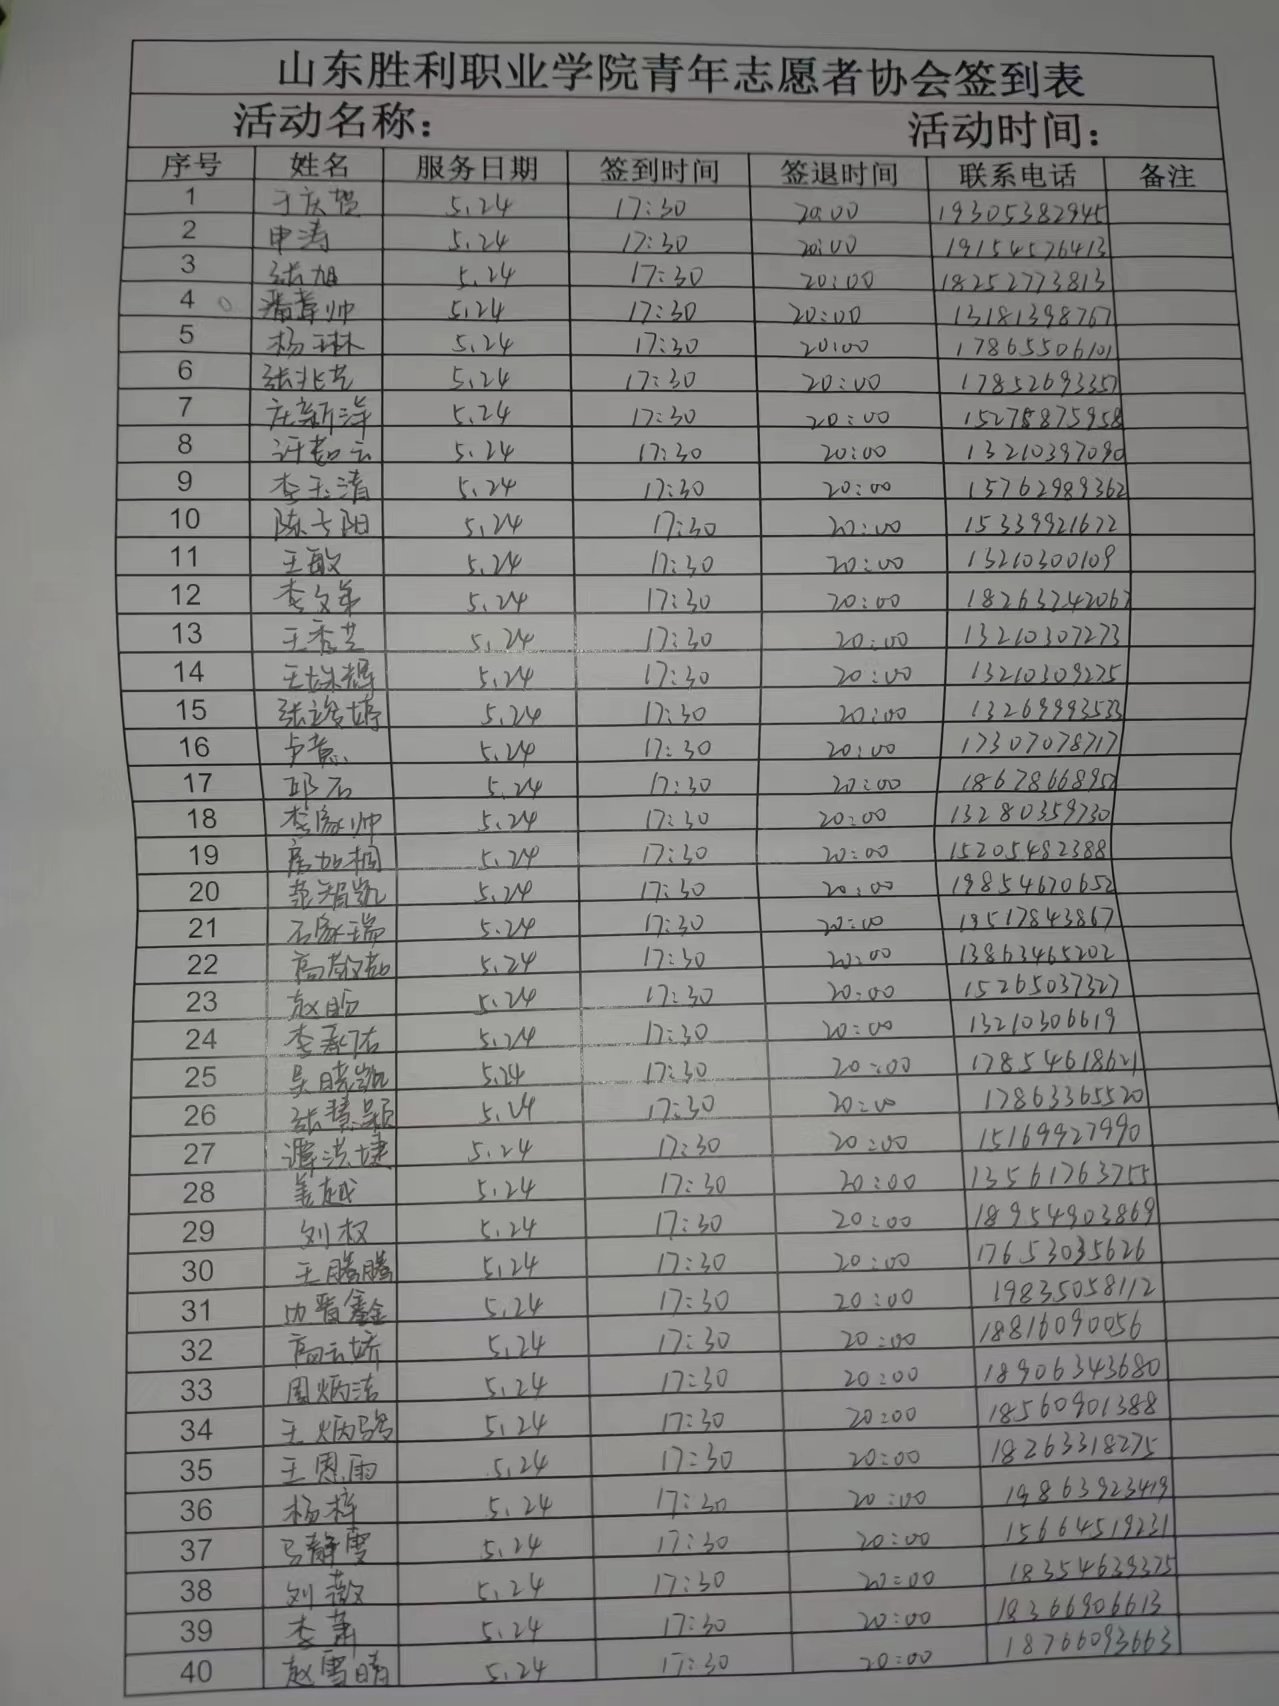 山东胜利职业学院青年志愿者协会签到表
活动名称： 活动时间：
序号 姓名 服务日期 签到时间 签退时间 联系电话 备注
1 于庆贺 5.24 17:30 20:00 19305382945
2 申涛 5.24 17:30 20:00 19154576413
3 张旭 5.24 17:30 20:00 18252773813
4 潘章帅 5.24 17:30 20:00 13181398767
5 杨琳 5.24 17:30 20:00 17865506101
6 张兆芝 5.24 17:30 20:00 17852693357
7 庄新洋 5.24 17:30 20:00 15275875958
8 5.24 17:30 20:00 13210397090
9 李玉清 5.24 17:30 20:00 15762989362
10 陈子阳 5.24 17:30 20:00 15339921672
11 王敏 5.24 17:30 20:00 13210300109
12 李文弟 5.24 17:30 20:00 18263742067
13 王秀芝 5.24 17:30 20:00 13210307273
14 王姝耀 5.24 17:30 20:00 13210309275
15 张竣婷 5.24 17:30 20:00 13269993533
16 卢 5.24 17:30 20:00 17307078717
17 邱石 5.24 17:30 20:00 18678668957
18 李家帅 5.24 17:30 20:00 13280359730
19 房如桐 5.24 17:30 20:00 15205482388
20 范智凯 5.24 17:30 20:00 19854670652
21 石家瑞 5.24 17:30 20:00 19517843867
22 高敬茹 5.24 17:30 20:00 13863465202
23 赵昀 5.24 17:30 20:00 15265037327
24 李 5.24 17:30 20:00 13210306619
25 吴晓凯 5.24 17:30 20:00 17854618621
26 张慧颖 5.24 17:30 20:00 17863365520
27 谭洪婕 5.24 17:30 20:00 15169927990
28 姜越 5.24 17:30 20:00 13561763755
29 刘权 5.24 17:30 20:00 18954903869
30 王腾腾 5.24 17:30 20:00 17653035626
31 5.24 17:30 20:00 19835058112
32 高云娇 5.24 17:30 20:00 18816090056
33 周炳洁 5.24 17:30 20:00 18906343680
34 王炳 5.24 17:30 20:00 18560901388
35 王恩雨 5.24 17:30 20:00 18263318275
36 杨梓 5.24 17:30 20:00 19863923419
37 马静雯 5.24 17:30 20:00 15664519231
38 刘薇 5.24 17:30 20:00 18354639375
39 李萧 5.24 17:30 20:00 18366906613
40 赵雪晴 5.24 17:30 20:00 18766093663